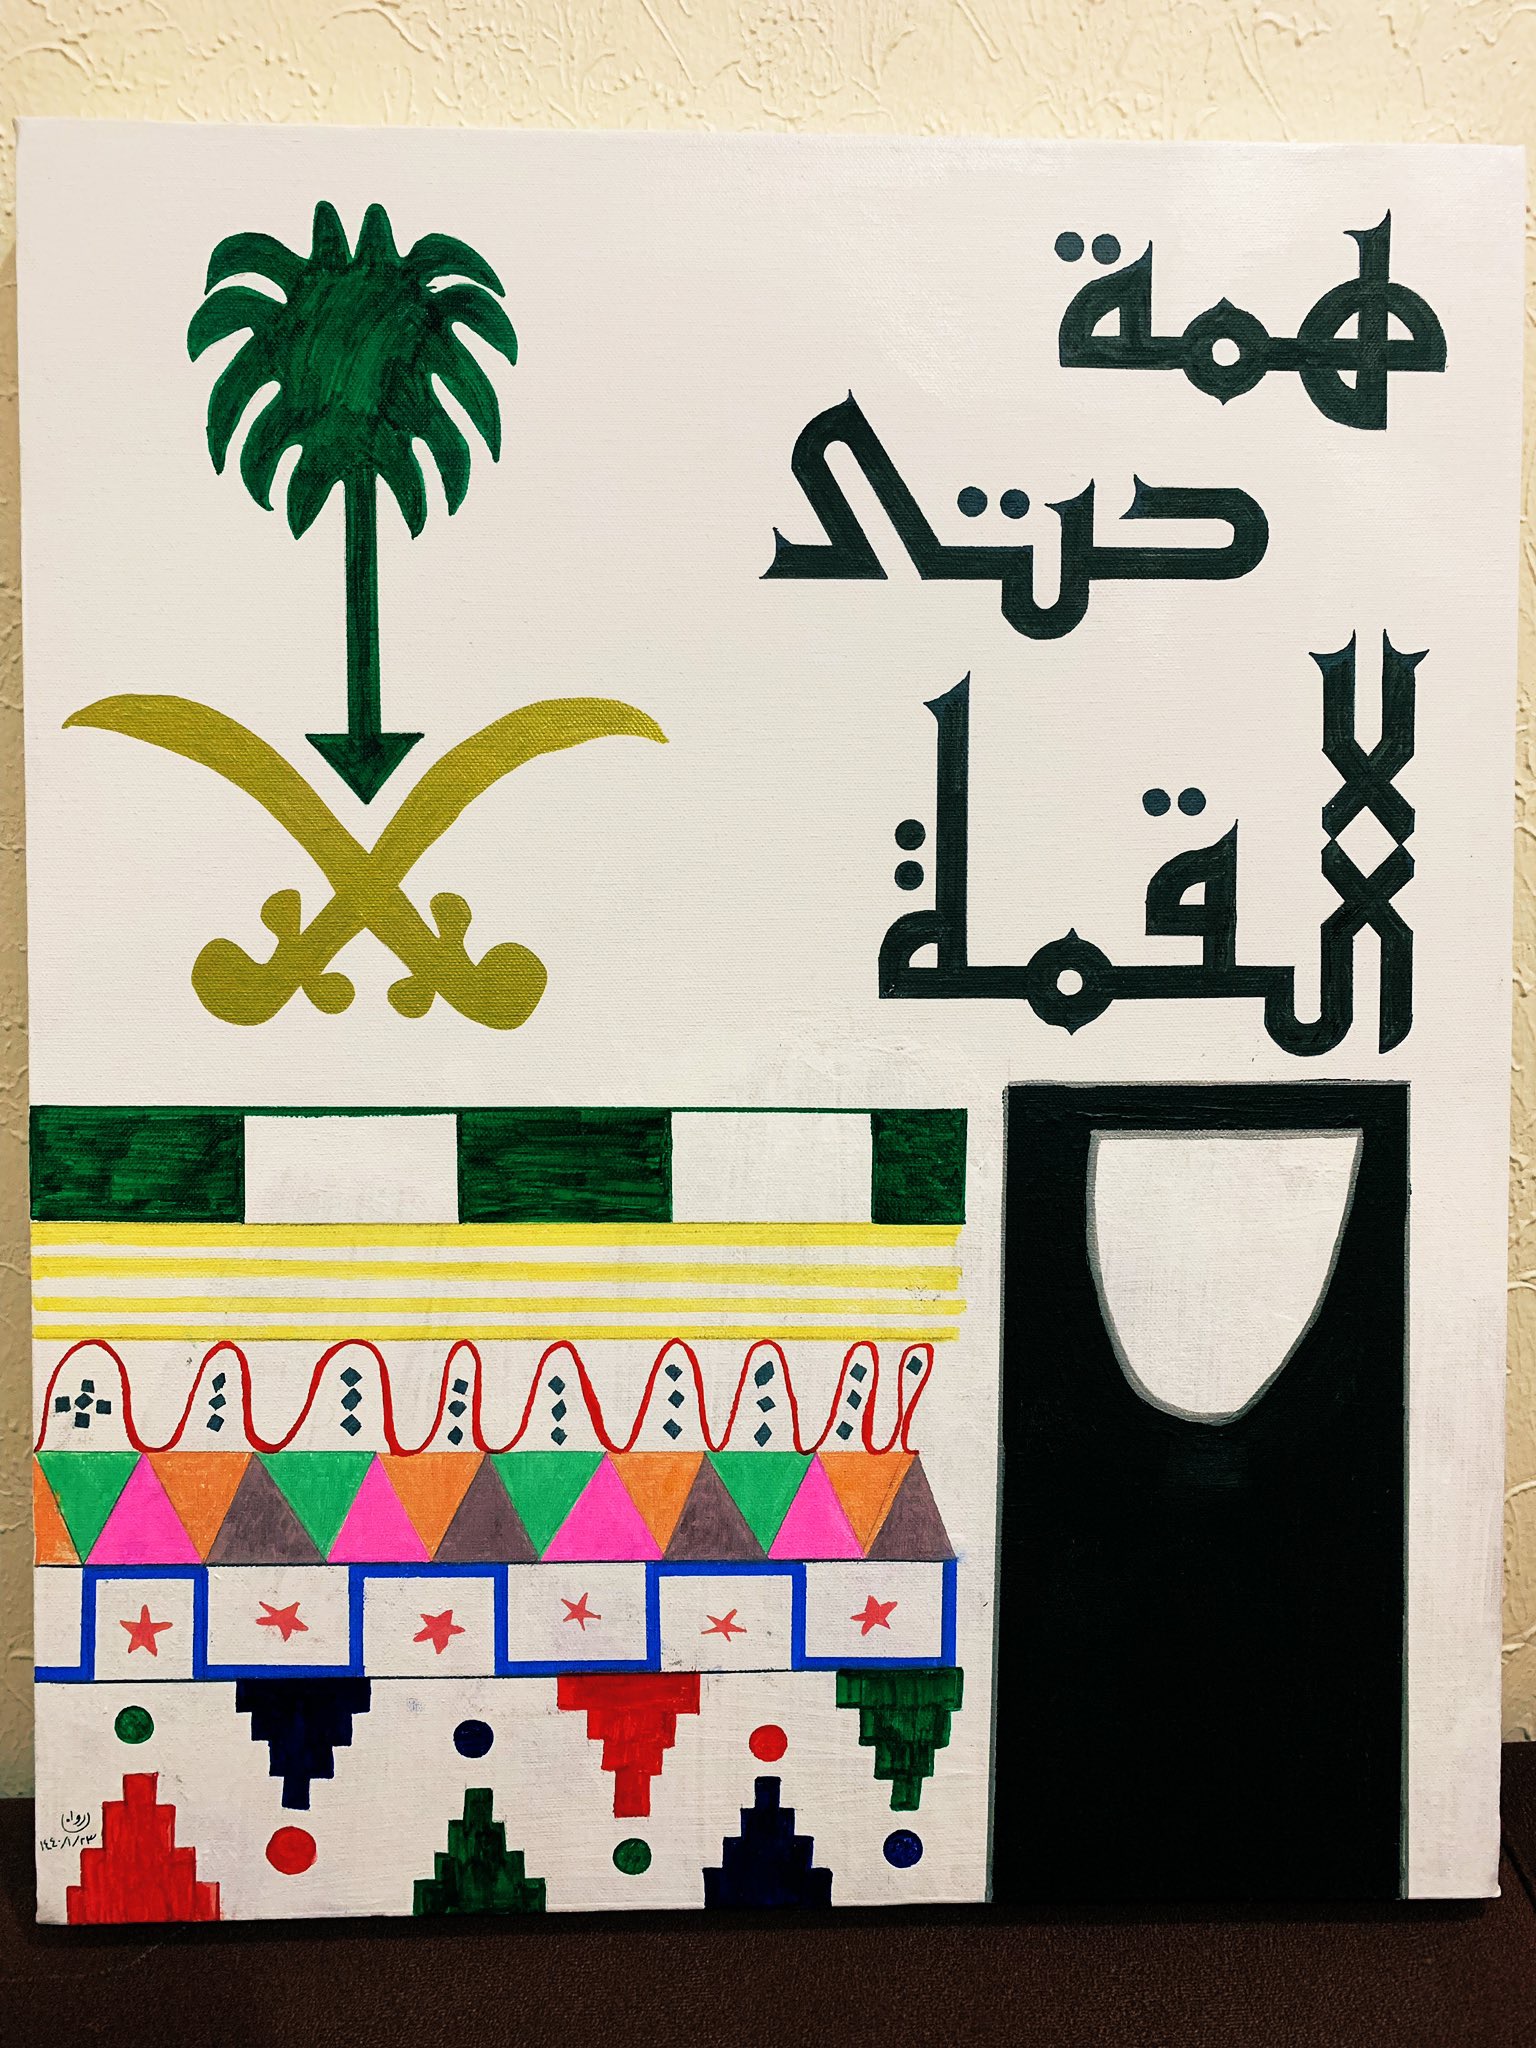 همة
حتى
القمة
روان
١٤٤٠/١/٢٣